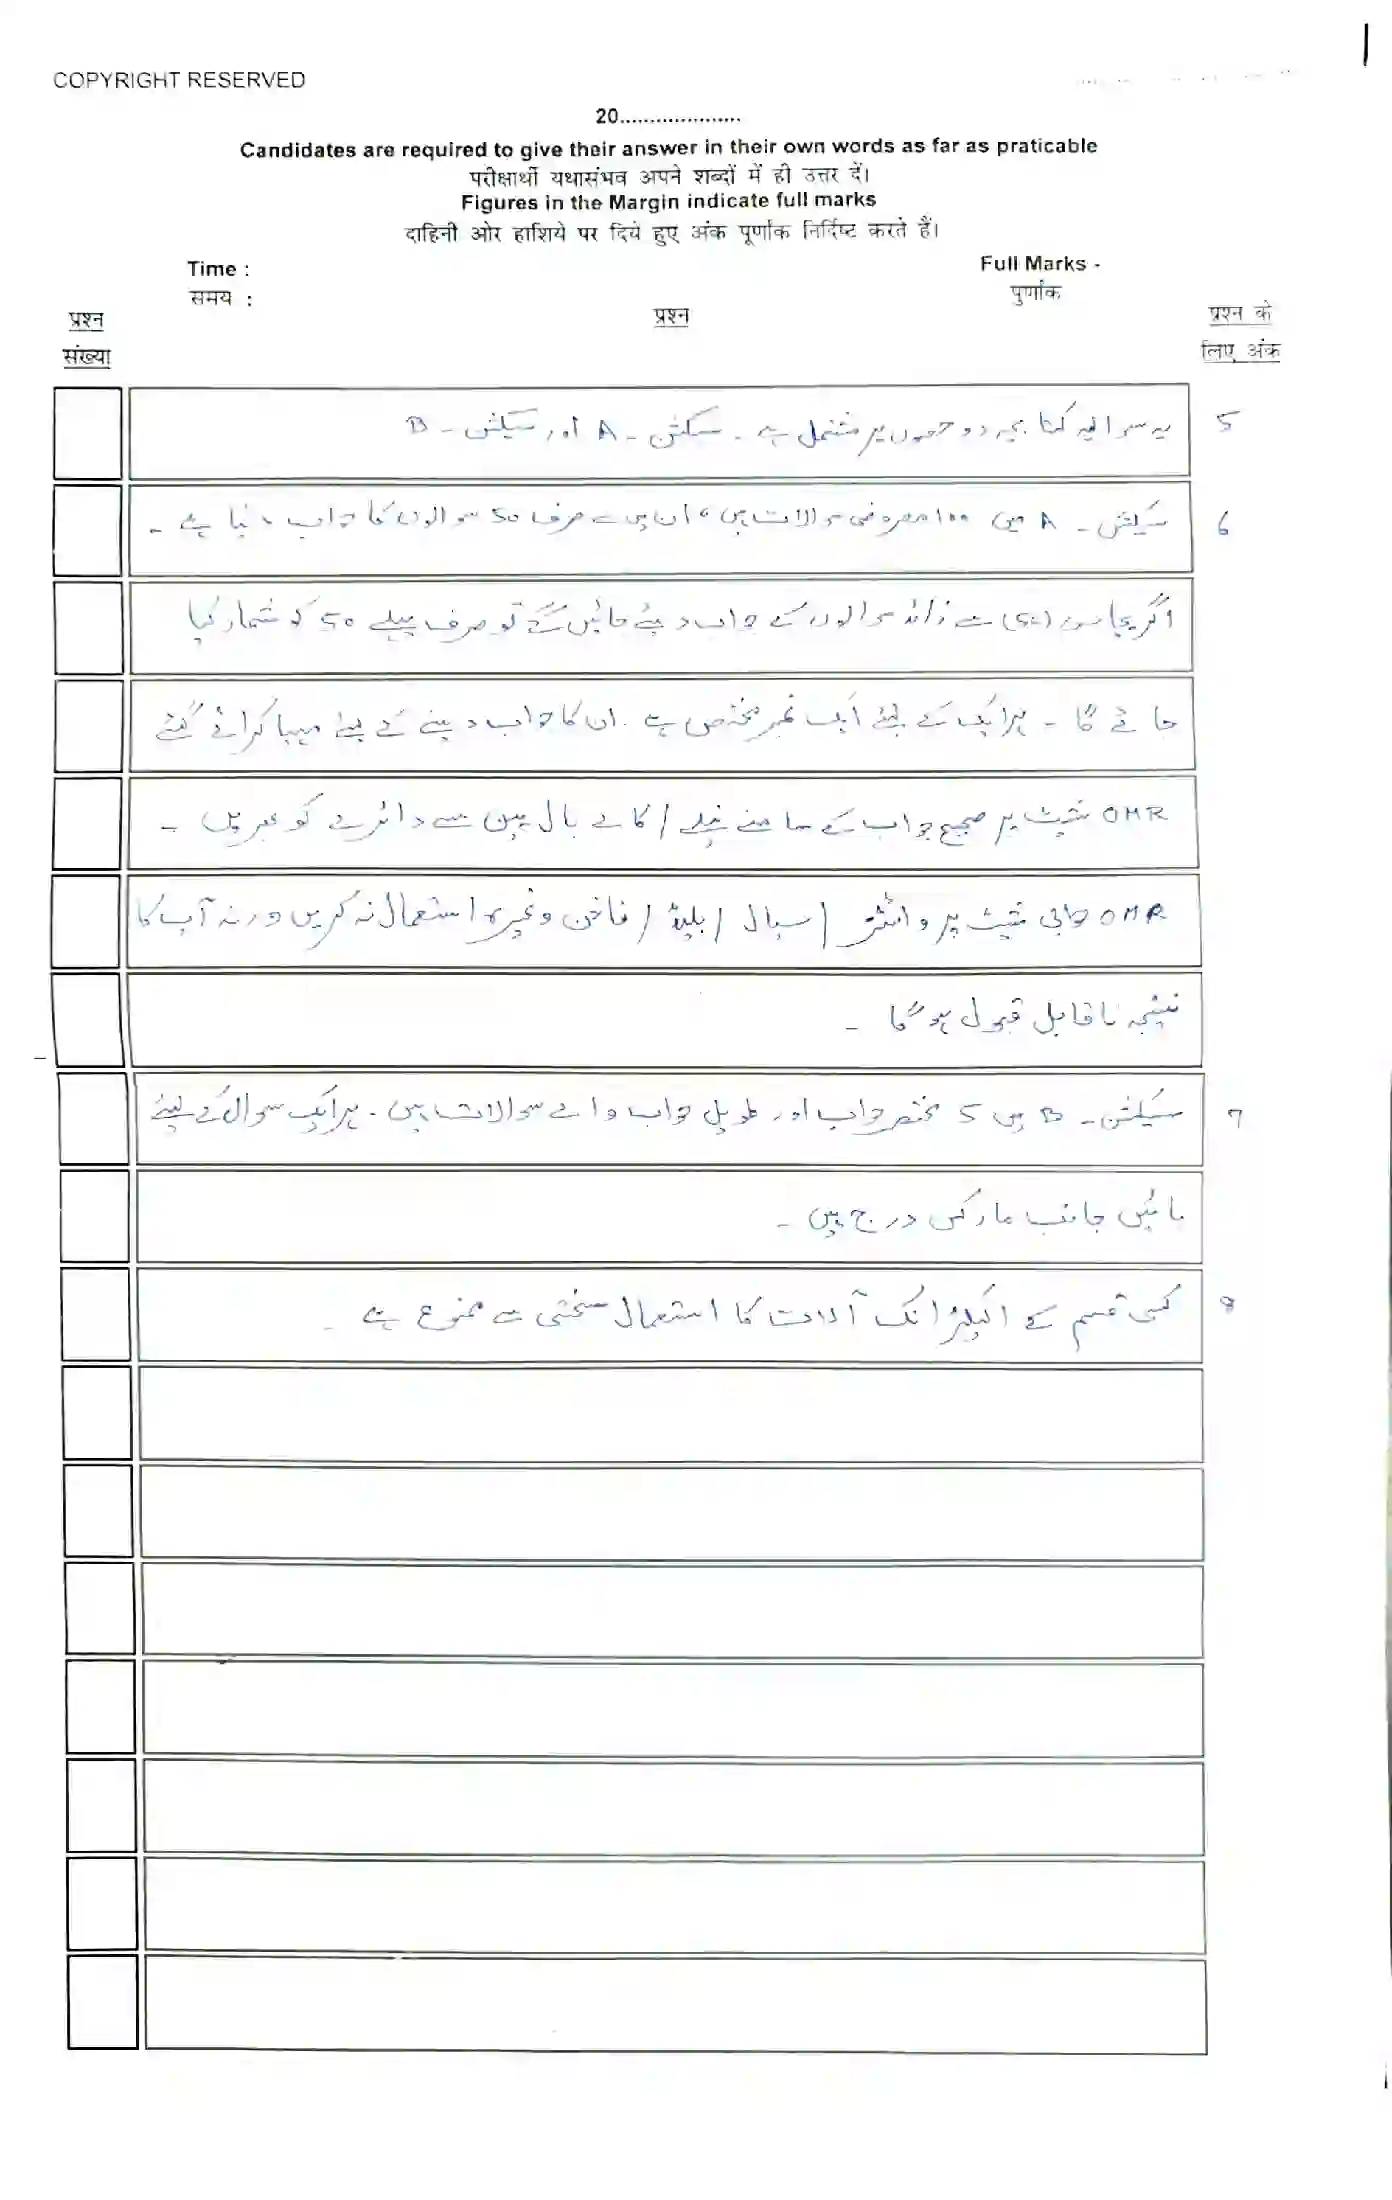 COPYRIGHT RESERVED
20.....................
Candidates are required to give their answer in their own words as far as praticable
परीक्षार्थी यथासंभव अपने शब्दों में ही उत्तर दें।
Figures in the Margin indicate full marks
दाहिनी ओर हाशिये पर दिये हुए अंक पूर्णांक निर्दिष्ट करते हैं।
Time : Full Marks -
समय : पुर्णांक
प्रश्न प्रश्न प्रश्न के
संख्या लिए अंक
5 یہ سوالیہ کتابچہ دو حصوں پر مشتمل ہے ۔ سیکشن ۔ A اور سیکشن ۔ B
6 سیکشن ۔ A میں 100 معروضی سوالات ہیں، ان میں سے صرف 50 سوالوں کا جواب دینا ہے ۔
اگر پچاس (50) سے زائد سوالوں کے جواب دیئے جائیں گے تو صرف پہلے 50 کو شمار کیا
جائے گا ۔ ہر ایک کے لیئے ایک نمبر مختص ہے ۔ ان کا جواب دینے کے لیئے مہیا کرائے گئے
OMR شیٹ پر صحیح جواب کے سامنے نیلے / کالے بال پین سے دائرے کو بھریں ۔
OMR جوابی شیٹ پر وائٹنر / سیال / بلیڈ / ناخن وغیرہ استعمال نہ کریں ورنہ آپ کا
نتیجہ ناقابل قبول ہوگا ۔
7 سیکشن ۔ B میں 5 مختصر جواب اور طویل جواب والے سوالات ہیں ۔ ہر ایک سوال کے لیئے
بائیں جانب مارکس درج ہیں ۔
8 کسی قسم کے الیکٹرانک آلات کا استعمال سختی سے ممنوع ہے ۔